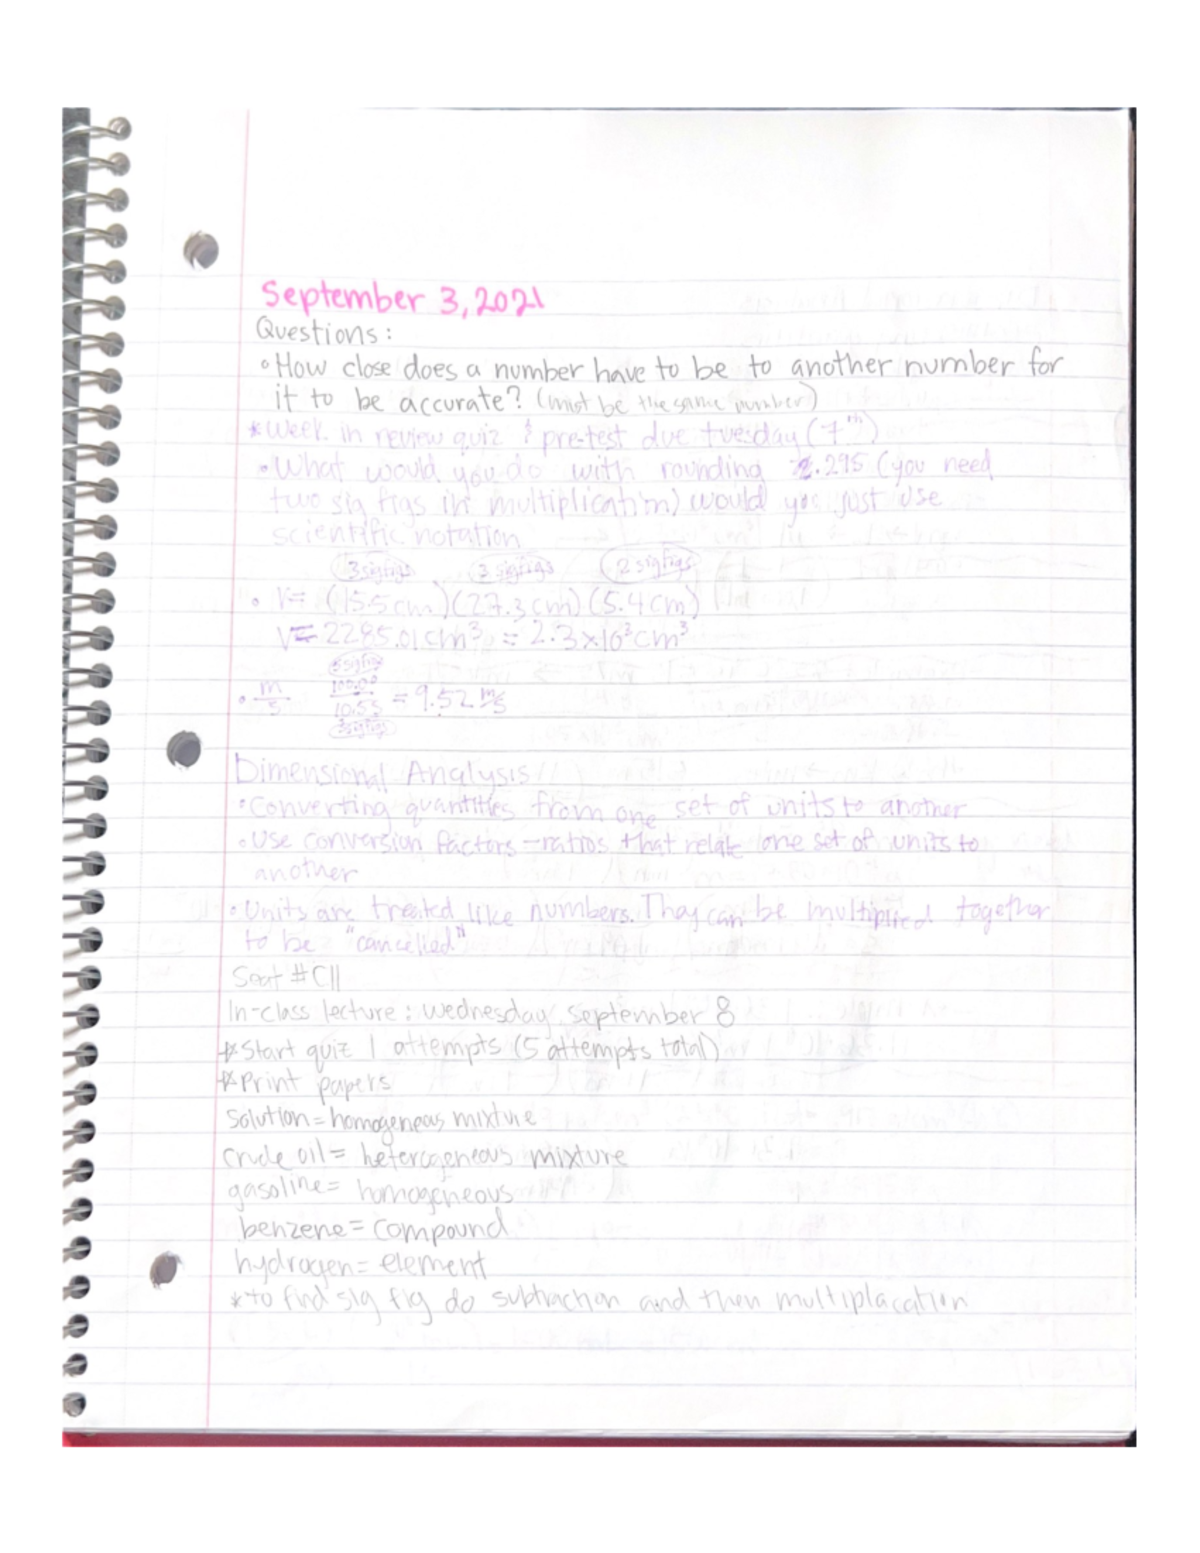 September 3, 2021
Questions:
• How close does a number have to be to another number for
it to be accurate? (must be the same number)
* Week in review quiz & pre-test due tuesday (7th)
• What would you do with rounding 2.295 (you need
two sig figs in multiplication) would you just use
scientific notation
3 sigfigs 3 sigfigs 2 sigfigs
• V= (15.5cm)(27.3cm)(5.4cm)
V= 2285.01cm³ = 2.3x10³cm³
5 sigfigs
• m/s 100.00/10.5 s = 9.52 m/s
3 sigfigs
Dimensional Analysis
• Converting quantities from one set of units to another
• Use conversion factors - ratios that relate one set of units to
another
• Units are treated like numbers. They can be multiplied together
to be "cancelled"
Seat #C11
In-class lecture: wednesday, september 8
* Start quiz 1 attempts (5 attempts total)
* Print papers
solution = homogeneous mixture
crude oil = heterogeneous mixture
gasoline = homogeneous
benzene = compound
hydrogen = element
* to find sig fig do subtraction and then multiplacation